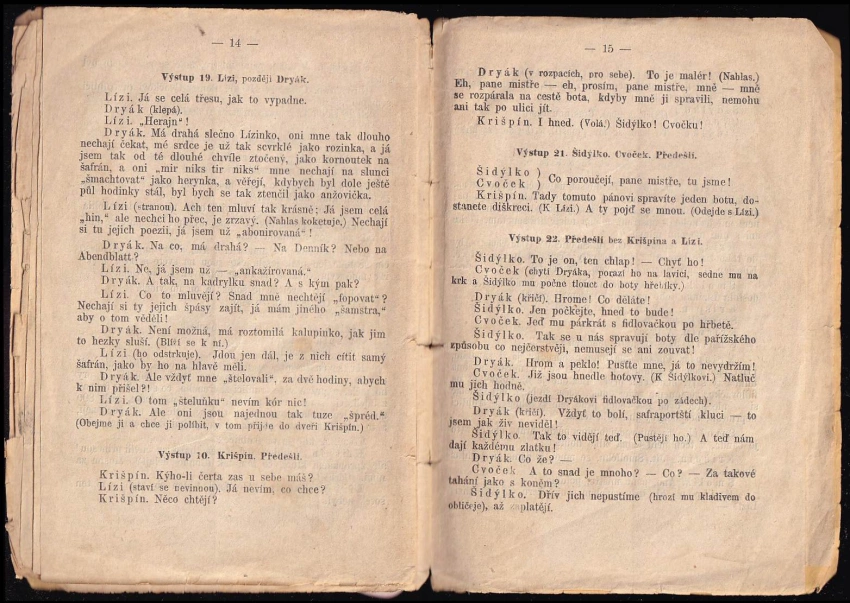 — 14 —
Výstup 19. Lízi, později Dryák.
Lízi. Já se celá třesu, jak to vypadne.
Dryák (klepá).
Lízi. „Herajn“!
Dryák. Má drahá slečno Lízinko, oni mne tak dlouho
nechají čekat, mé srdce je už tak scvrklé jako rozinka, a já
jsem tak od té dlouhé chvíle ztočený, jako kornoutek na
šafrán, a oni „mir niks tir niks“ mne nechají na slunci
„šmachtovat“ jako herynka, a věřejí, kdybych byl dole ještě
půl hodinky stál, byl bych se tak ztenčil jako anžovička.
Lízi (stranou). Ach ten mluví tak krásně; Já jsem celá
„hin,“ ale nechci ho přec, je zrzavý. (Nahlas koketuje.) Nechají
si tu jejich poezii, já jsem už „abonirovaná“!
Dryák. Na co, má drahá? — Na Denník? Nebo na
Abendblatt?
Lízi. Ne, já jsem už — „ankažírovaná.“
Dryák. A tak, na kadrylku snad? A s kým pak?
Lízi. Co to mluvějí? Snad mne nechtějí „fopovat“?
Nechají si ty jejich špásy zajít, já mám jiného „šamstra,“
aby o tom věděli!
Dryák. Není možná, má roztomilá kalupinko, jak jim
to hezky sluší. (Blíží se k ní.)
Lízi (ho odstrkuje). Jdou jen dál, je z nich cítit samý
šafrán, jako by ho na hlavě měli.
Dryák. Ale vždyť mne „štelovali“, za dvě hodiny, abych
k nim přišel?!
Lízi. O tom „steluňku“ nevím kór nic!
Dryák. Ale oni jsou najednou tak tuze „špréd.“
(Obejme ji a chce ji políbit, v tom přijde do dveří Krišpín.)
Výstup 10. Krišpín. Předešlí.
Krišpín. Kýho-li čerta zas u sebe máš?
Lízi (staví se nevinnou). Já nevím, co chce?
Krišpín. Něco chtějí?
— 15 —
Dryák (v rozpacích, pro sebe). To je malér! (Nahlas.)
Eh, pane mistře — eh, prosím, pane mistře, mně — mně
se rozpárala na cestě bota, kdyby mně ji spravili, nemohu
ani tak po ulici jít.
Krišpín. I hned. (Volá.) Šidýlko! Cvočku!
Výstup 21. Šidýlko. Cvoček. Předešlí.
Šidýlko )
Cvoček ) Co poroučejí, pane mistře, tu jsme!
Krišpín. Tady tomuto pánovi spravíte jeden botu, do-
stanete diškreci. (K Lízi.) A ty pojď se mnou. (Odejde s Lízi.)
Výstup 22. Předešlí bez Krišpína a Lízi.
Šidýlko. To je on, ten chlap! — Chyť ho!
Cvoček (chytí Dryáka, porazí ho na lavici, sedne mu na
krk a Šidýlko mu počne tlouct do boty hřebíky.)
Dryák (křičí). Hrome! Co děláte!
Šidýlko. Jen počkejte, hned to bude!
Cvoček. Jeď mu párkrát s fidlovačkou po hřbetě.
Šidýlko. Tak se u nás spravují boty dle pařížského
způsobu co nejčerstvěji, nemusejí se ani zouvat!
Dryák. Hrom a peklo! Pusťte mne, já to nevydržím!
Cvoček. Již jsou hnedle hotovy. (K Šidýlkovi.) Natluč
mu jich hodně.
Šidýlko (jezdí Dryákovi fidlovačkou po zádech).
Dryák (křičí). Vždyť to bolí, safraportští kluci — to
jsem jak živ neviděl!
Šidýlko. Tak to vidějí teď. (Pustějí ho.) A teď nám
dají každému zlatku!
Dryák. Co že? —
Cvoček. A to snad je mnoho? — Co? — Za takové
tahání jako s koněm?
Šidýlko. Dřív jich nepustíme (hrozí mu kladivem do
obličeje), až zaplatějí.